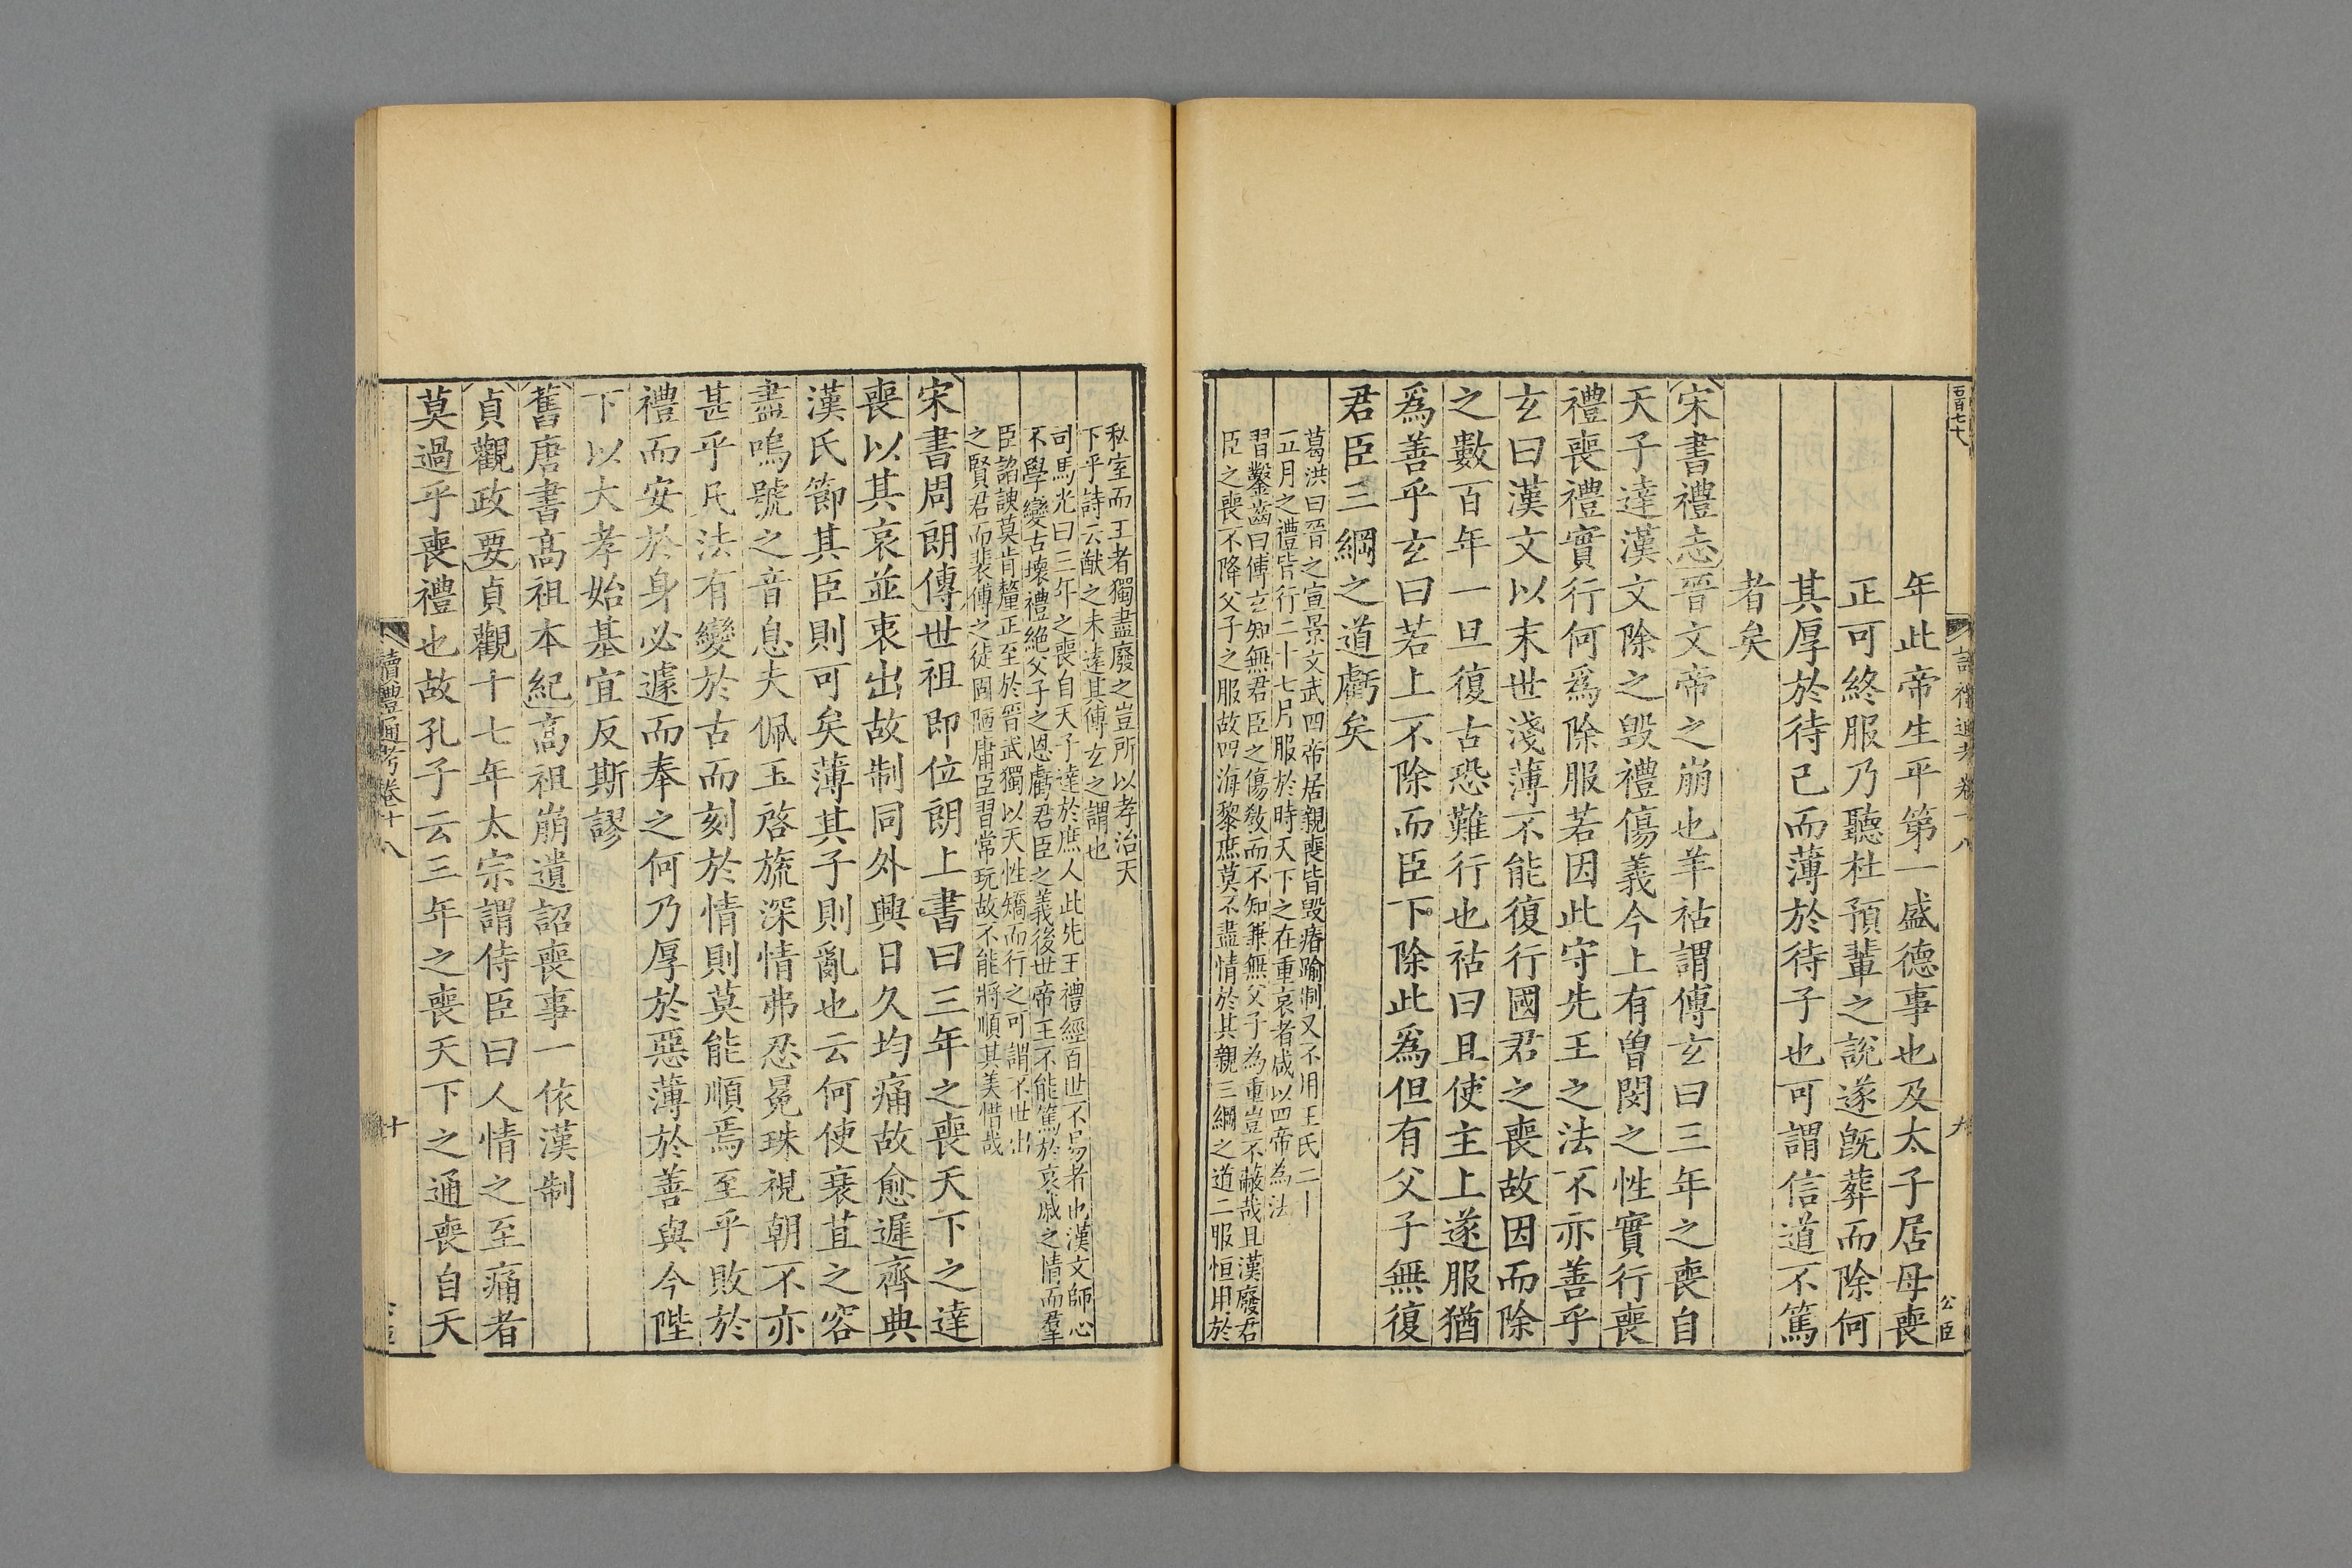 年此帝生平第一盛德事也及太子居母喪
正可終服乃聽杜預輩之說遂旣葬而除何
其厚於待己而薄於待子也可謂信道不篤
者矣
宋書禮志晉文帝之崩也羊祜謂傅玄曰三年之喪自
天子達漢文除之毀禮傷義今上有曾閔之性實行喪
禮喪禮實行何爲除服若因此守先王之法不亦善乎
玄曰漢文以末世淺薄不能復行國君之喪故因而除
之數百年一旦復古恐難行也祜曰且使主上遂服猶
爲善乎玄曰若上不除而臣下除此爲但有父子無復
君臣三綱之道虧矣
葛洪曰晉之宣景文武四帝居親喪皆毀瘠踰制又不用王氏二十
五月之禮皆行二十七月服於時天下之在重哀者咸以四帝為法
習鑿齒曰傅玄知無君臣之傷敎而不知兼無父子為重豈不蔽哉且漢廢君
臣之喪不降父子之服故四海黎庶莫不盡情於其親三綱之道二服恒用於
私室而王者獨盡廢之豈所以孝治天
下乎詩云猷之未遠其傅玄之謂也
司馬光曰三年之喪自天子達於庶人此先王禮經百世不易者也漢文師心
不學變古壞禮絕父子之恩虧君臣之義後世帝王不能篤於哀戚之情而羣
臣諂諛莫肯釐正至於晉武獨以天性矯而行之可謂不世出
之賢君而裴傅之徒固陋庸臣習常玩故不能將順其美惜哉
宋書周朗傳世祖即位朗上書曰三年之喪天下之達
喪以其哀並衷出故制同外興日久均痛故愈遲齊典
漢氏節其臣則可矣薄其子則亂也云何使衰苴之容
盡嗚號之音息夫佩玉啓旒深情弗忍冕珠視朝不亦
甚乎凡法有變於古而刻於情則莫能順焉至乎敗於
禮而安於身必遽而奉之何乃厚於惡薄於善與今陛
下以大孝始基宜反斯謬
舊唐書高祖本紀高祖崩遺詔喪事一依漢制
貞觀政要貞觀十七年太宗謂侍臣曰人情之至痛者
莫過乎喪禮也故孔子云三年之喪天下之通喪自天
讀禮通考卷十八
十